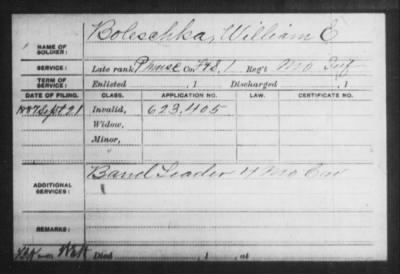 NAME OF SOLDIER: Boleschka, William E
SERVICE: Late rank, P. Music Co. F&S, 1 Reg't Mo Inf
TERM OF SERVICE: Enlisted , 1 Discharged , 1
DATE OF FILING. CLASS. APPLICATION NO. LAW. CERTIFICATE NO.
1887 Sept 21 Invalid, 623.405
Widow,
Minor,
ADDITIONAL SERVICES: Band Leader 4 Mo Cav
REMARKS:
Died , 1 , at